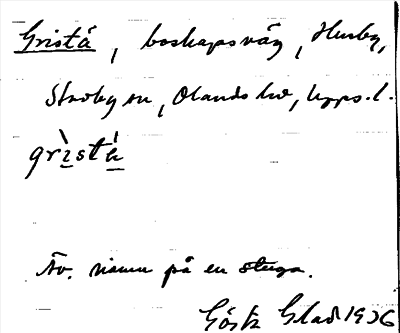 Gristå, boskapsväg, Husby,
Skäfthammar sn, Olands hd, Upps. l.
grìstá
Äv. namn på en stuga.
Gösta Glad 1926